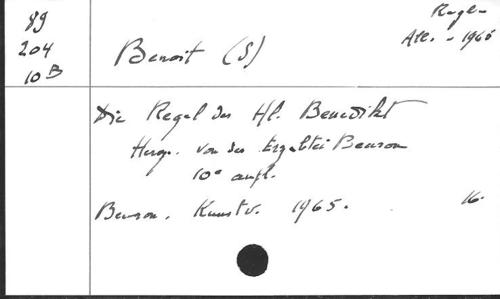 89
204
10 B
Regl-
All. - 1966
Benoit (S)
Die Regel des Hl. Benedikt
Hersg. von der Erzabtei Beuron
10e aufl.
Beuron. Kunstv. 1965. 16.